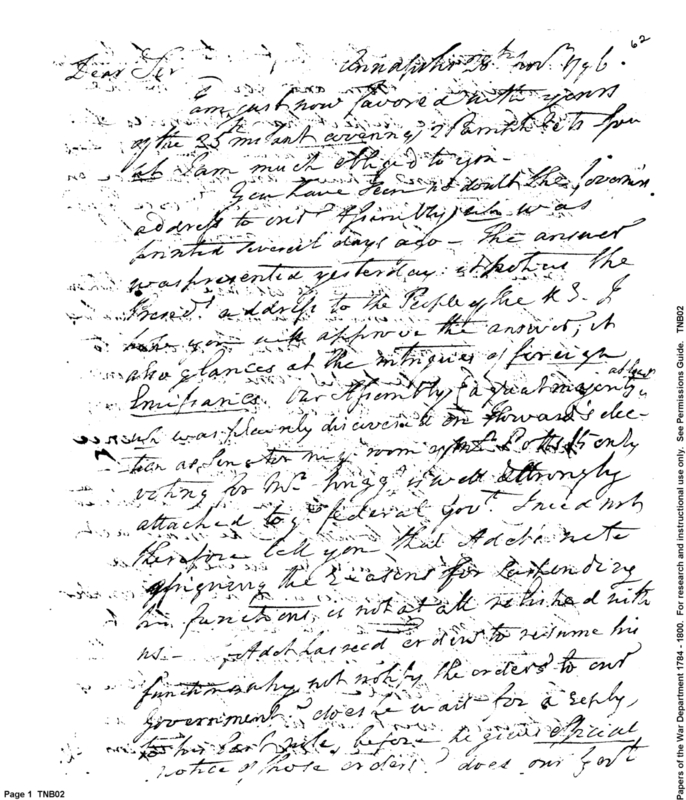 62
Dear Sir Annapolis 28th novr. 1796.
I am just now favored with yours
of the 25th instant covering 2 Pamphlets for
wh I am much obliged to you -
You have seen no doubt the Governrs.
address to our Assembly, wh was
printed several days ago - The answer
was presented yesterday: it the
Presidt address to the People of the U.S. I
hope you will approve the answer; it
also glances at the intrigues of foreign
Emissaries. Our Assembly (a great majority
wh was plainly discovered on Howard's elec-
tion as Senator in my room 15 only
voting for Mr. ) is well & strongly
attached to ye federal govt. I need not
therefore tell you that Adet's note
assigning the reasons for suspending
his functions, is not at all relished with
us - Adet has recd orders to resume his
functions why not notify the orders to our
government? does he wait for a reply,
to his last note, before he gives official
notice of those orders? does our govt
Page 1 TNB02
Papers of the War Department 1784 - 1800. For research and instructional use only. See Permissions Guide. TNB02